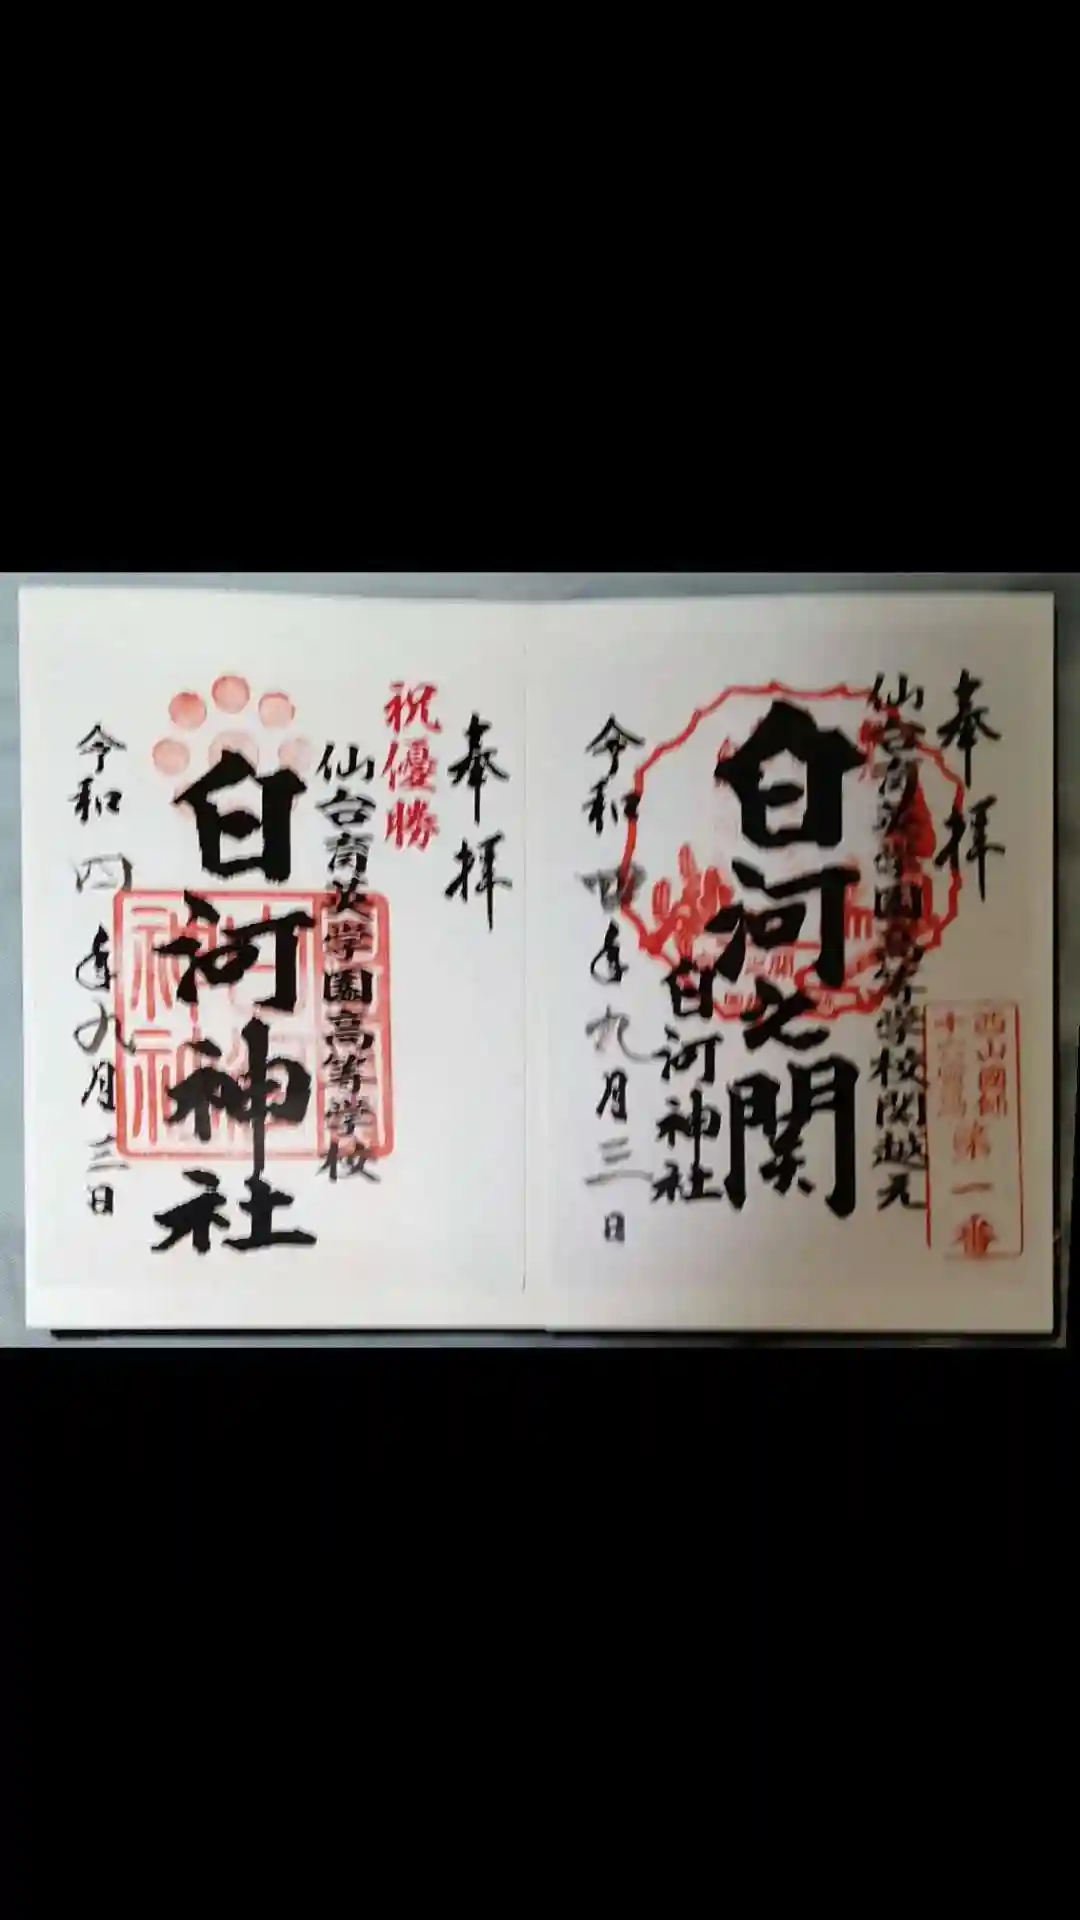 奉拝
仙台育英学園高等学校関越え
白河之関
白河神社
令和四年九月三日
第一番
奉拝
祝優勝
仙台育英学園高等学校
白河神社
令和四年九月三日